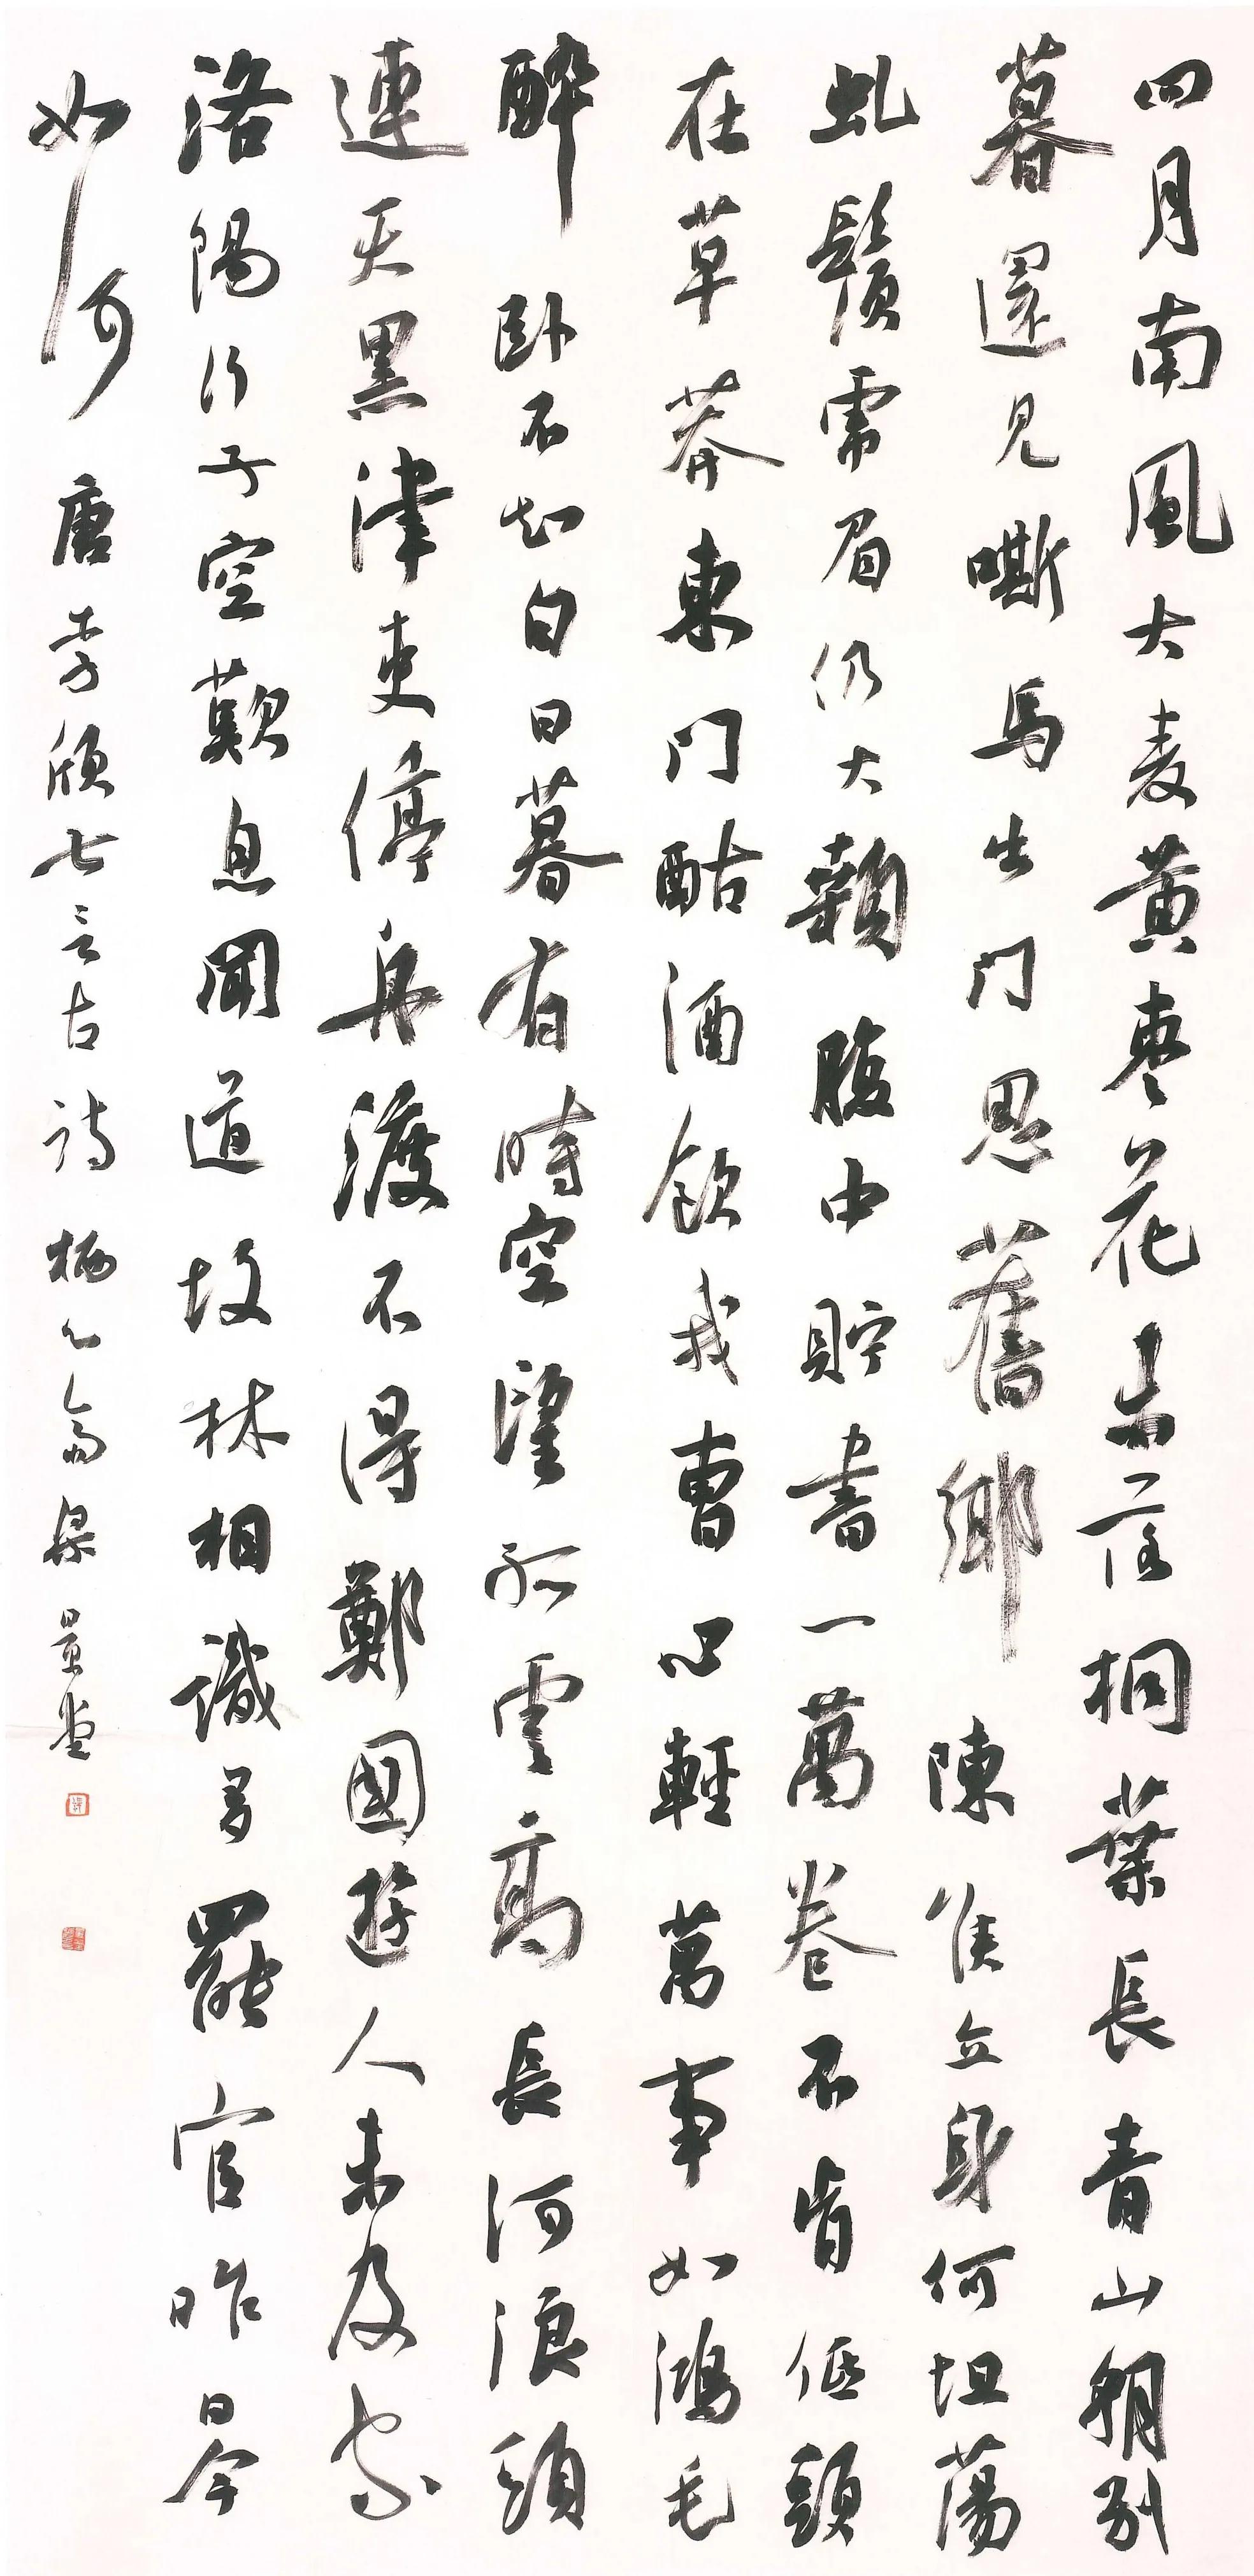 四月南風大麦黄枣花未落桐葉長青山朝别
暮還見嘶馬出门思舊鄉陳侯立身何坦蕩
虬鬚乕眉仍大顙腹中貯書一萬卷不肯低頭
在草莽東门酤酒飲我曹心輕萬事如鴻毛
醉卧不知白日暮有時空望孤雲高長河浪頭
連天黑津吏停舟渡不得鄭國遊人未及家
洛陽行子空歎息聞道故林相識多罷官昨日今
如何 唐李頎七言古詩 栖心斋 梁景